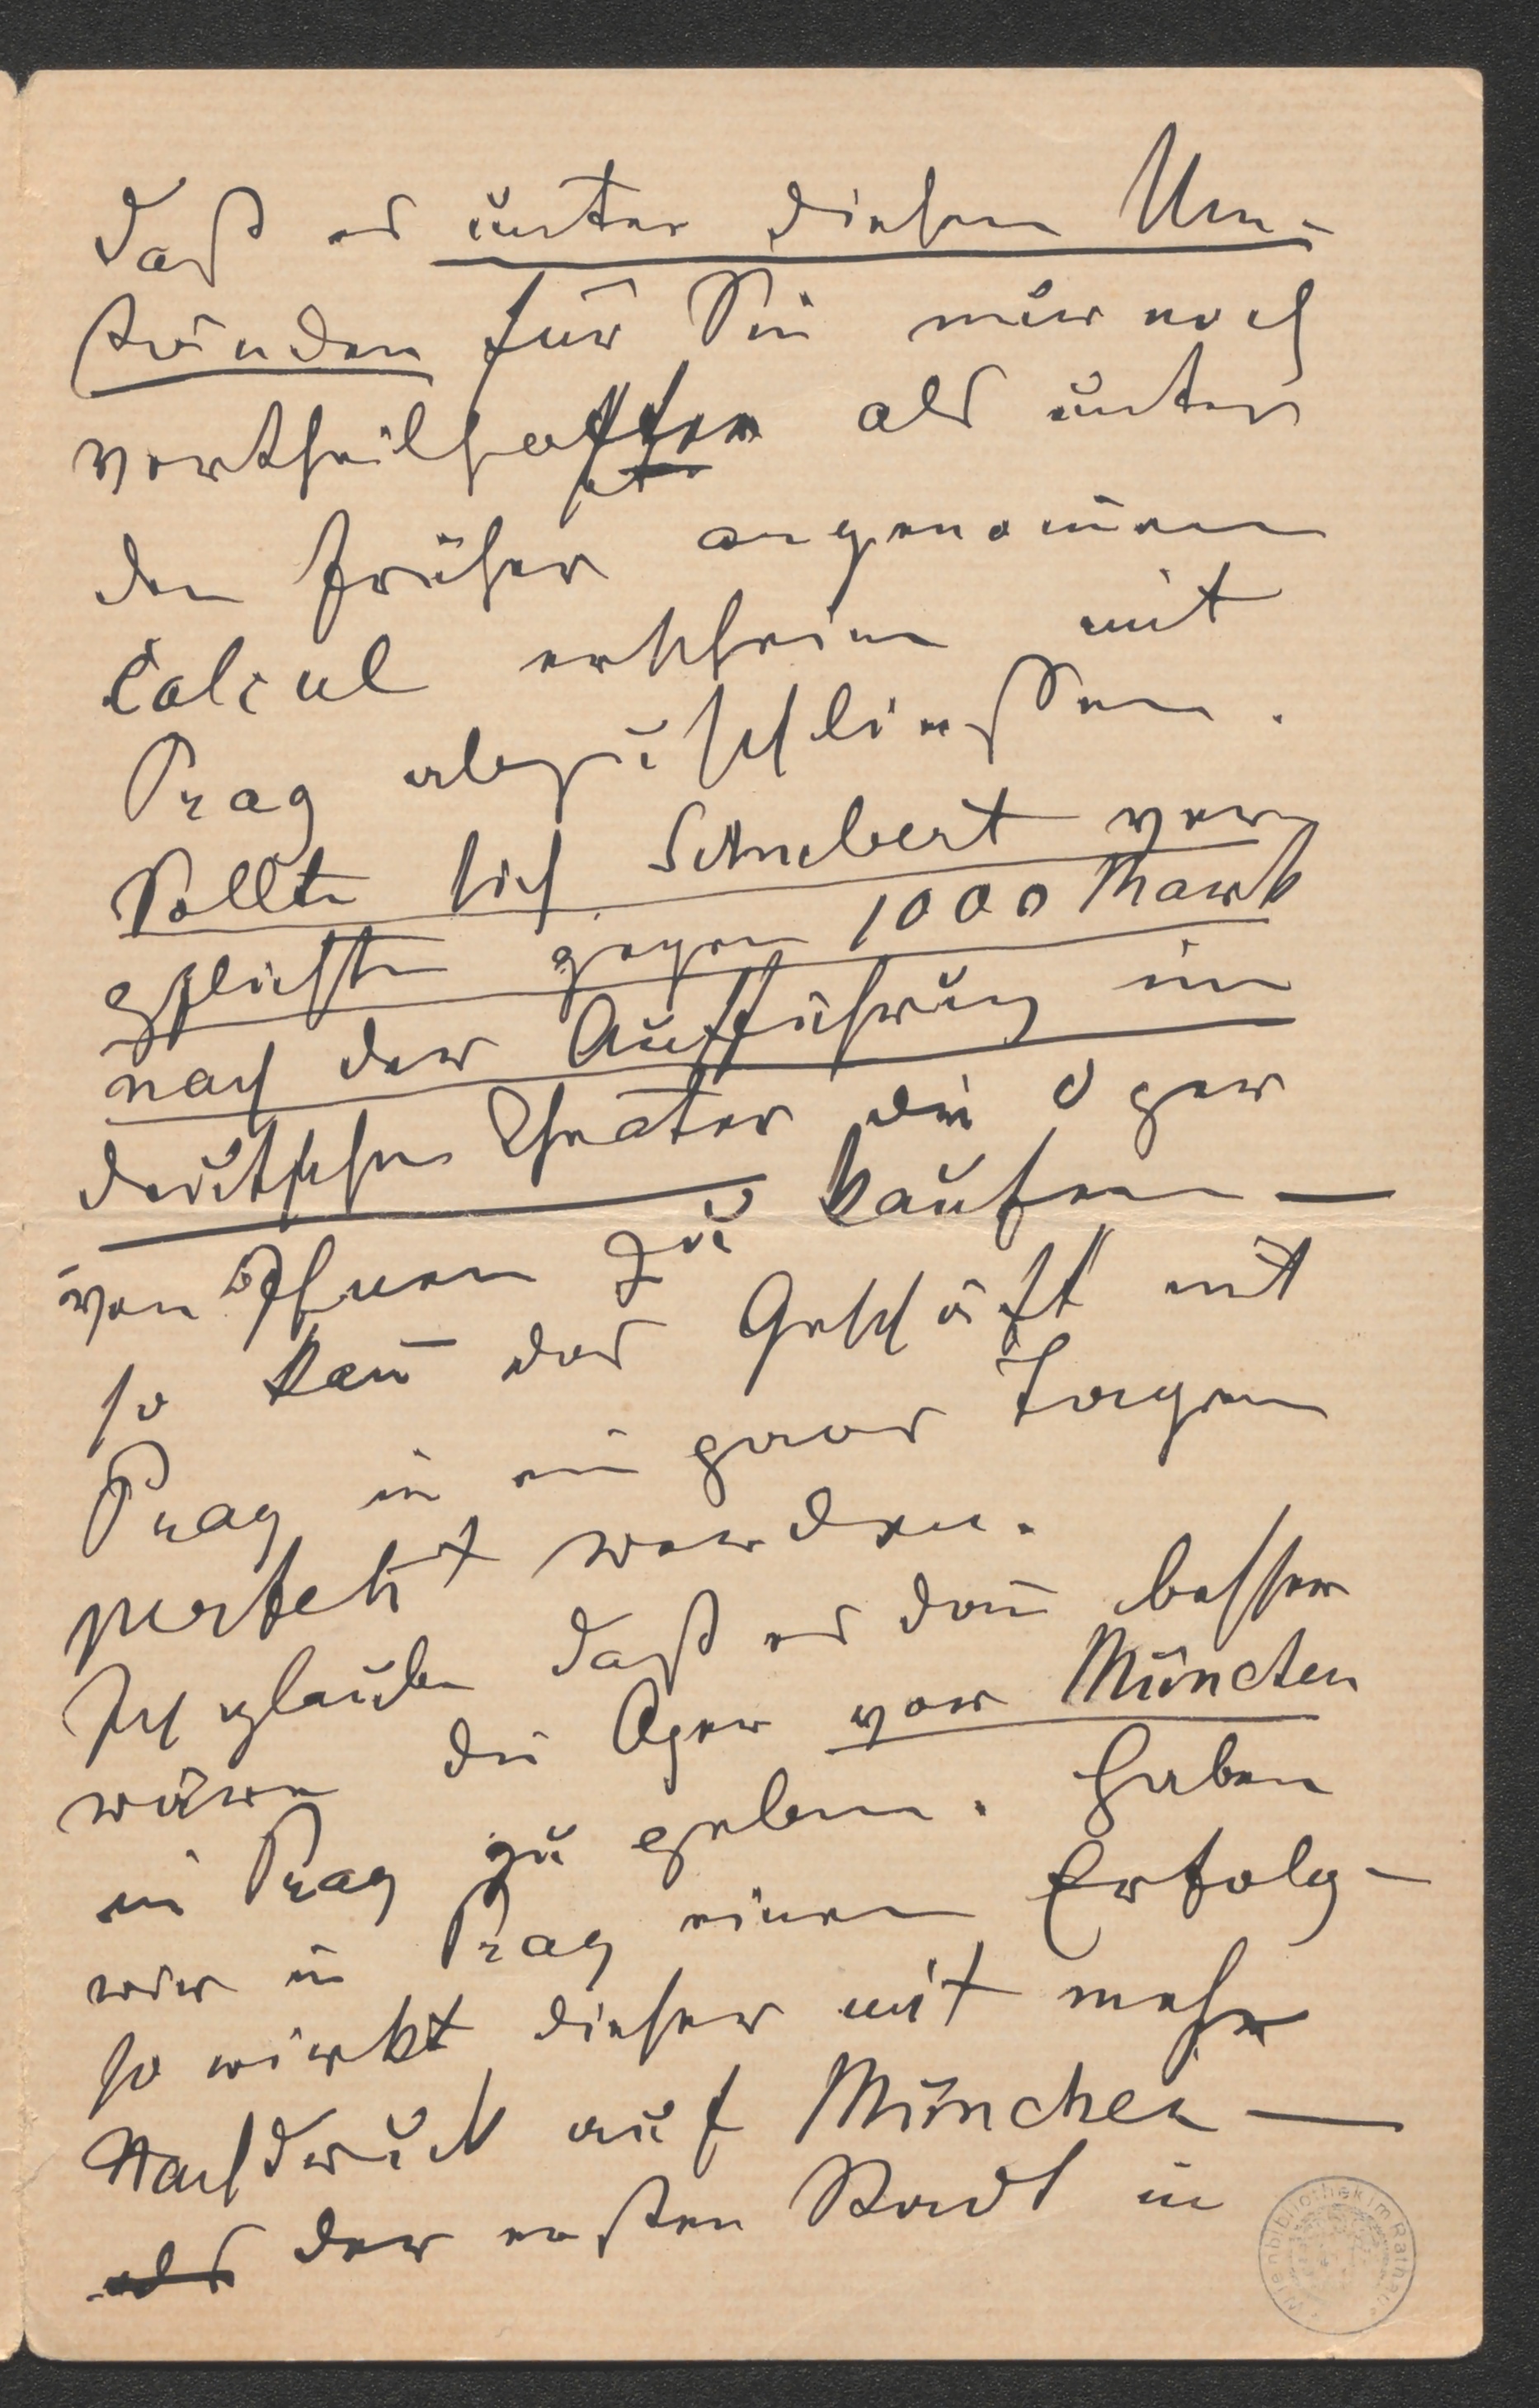 daß es unter diesen Um-
ständen für Sie nur noch
vortheilhafter als unter
den früher angenom̅enen
Calcul erscheine mit
Prag abzuschließen.
Sollte sich Schubert ver
pflichten gegen 1000 Mark
nach der Aufführung im
deutschen Theater die Oper
von Ihnen zu kaufen —
so kan̅ das Geschäft mit
Prag in ein paar Tagen
perfekt werden.
Ich glaube daß es dan̅ besser
wäre die Oper vor München
in Prag zu geben. Haben
wir in Prag einen Erfolg —
so wirkt dieser mit mehr
Nachdruck auf München —
als der ersten Stadt in
Wienbibliothek im Rathaus